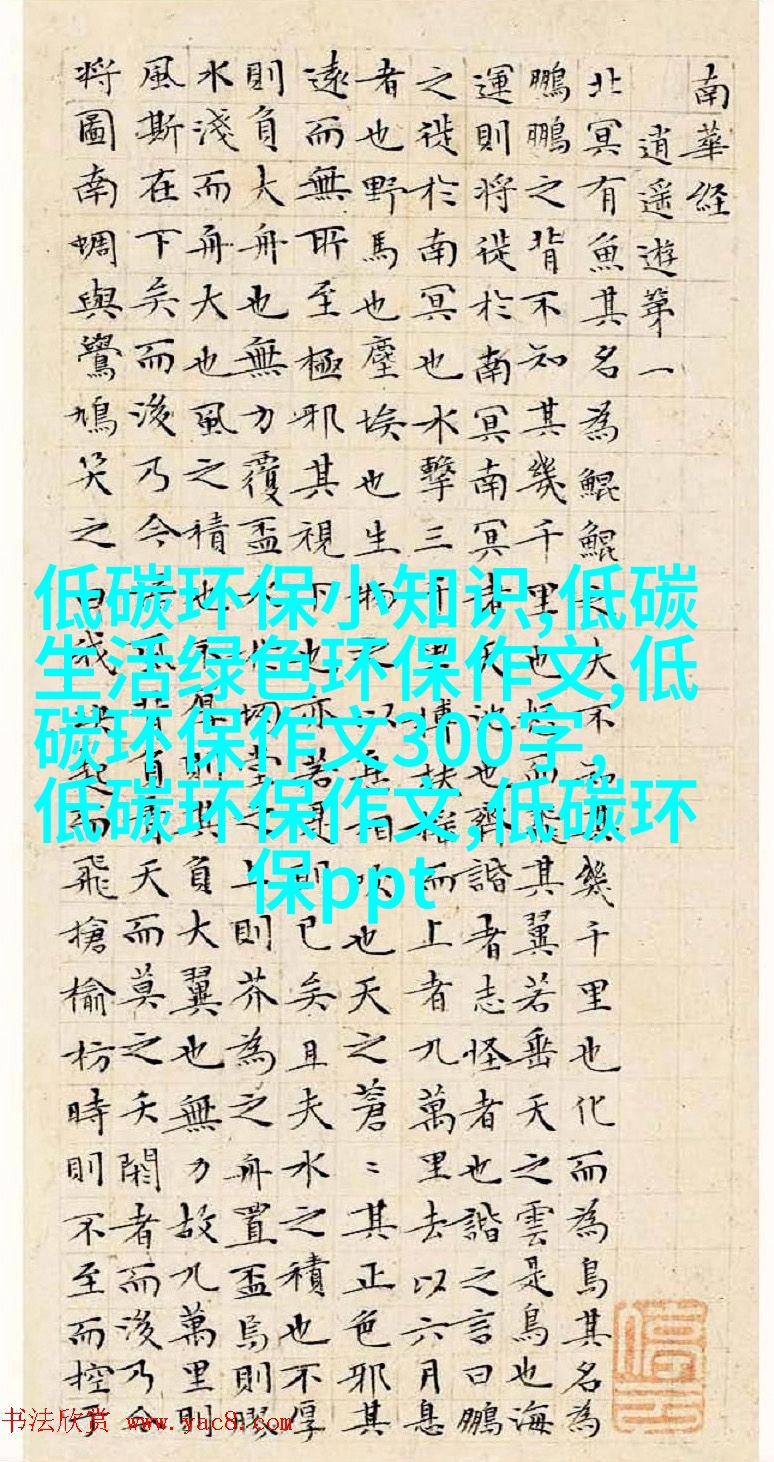 南華経
逍遥遊第一
北冥有魚其名為鯤鯤之大不知其幾千里也化而為鳥其名為
鵬鵬之背不知其幾千里也怒而飛其翼若垂天之雲是鳥也海
運則将徙於南冥南冥者天池也齊諧者志怪者也諧之言曰鵬
之徙於南冥也水擊三千里摶扶摇而上者九萬里去以六月息
者也野馬也塵埃也生物之以息相吹也天之蒼〻其正色邪其
遠而無所至極邪其視下也亦若是則已矣且夫水之積也不厚
則負大舟也無力覆盃水於坳堂之上則芥為之舟置盃焉則膠
水淺而舟大也風之積也不厚則其負大翼也無力故九萬里則
風斯在下矣而後乃今培風背負青天而莫之夭閼者而後乃今
将圖南蜩與鷽鳩笑之曰我決起而飛搶榆枋時則不至而控於
低碳环保小知识,低碳
生活绿色环保作文,低
碳环保作文300字,
低碳环保作文,低碳环
保ppt
书法欣赏 www.yac8.com